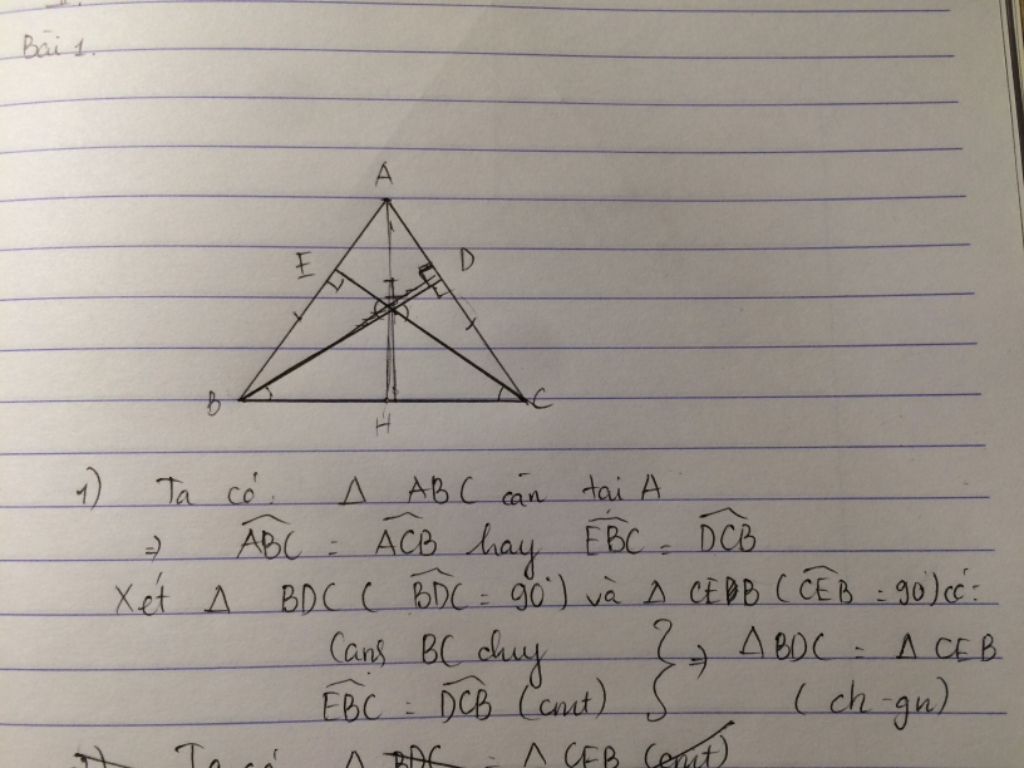 Bài 1.
A
E
D
B
C
H
1) Ta có: Δ ABC cân tại A
⇒ ABC = ACB hay EBC = DCB
Xét Δ BDC ( BDC = 90°) và Δ CEB (CEB = 90°) có:
Cạnh BC chung
⇒ ΔBDC = Δ CEB
EBC = DCB (cmt)
( ch - gn)
Ta có Δ BDC = Δ CEB (cmt)